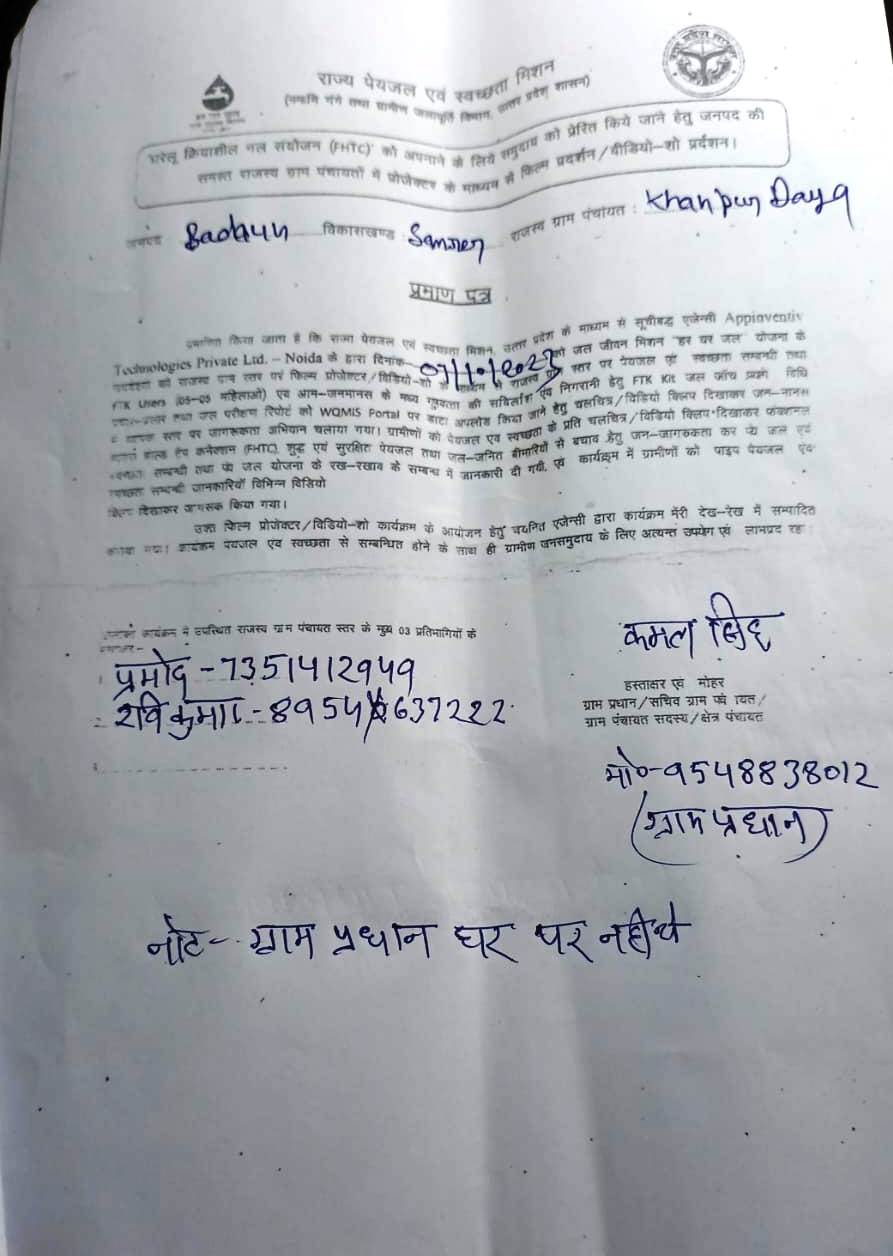 राज्य पेयजल एवं स्वच्छता मिशन
(नमामि गंगे तथा ग्रामीण जलापूर्ति विभाग, उत्तर प्रदेश शासन)
घरेलू क्रियाशील नल संयोजन (FHTC) को अपनाने के लिये समुदाय को प्रेरित किये जाने हेतु जनपद की
समस्त राजस्व ग्राम पंचायतों में प्रोजेक्टर के माध्यम से फिल्म प्रदर्शन/वीडियो-शो प्रर्दशन।
जनपद Badaun विकासखण्ड: राजस्व ग्राम पंचायत : Khanpur
प्रमाण पत्र
प्रमाणित किया जाता है कि राज्य पेयजल एवं स्वच्छता मिशन, उत्तर प्रदेश के माध्यम से सूचीबद्ध एजेन्सी Appinventiv
Technologies Private Ltd. – Noida के द्वारा दिनांक को जल जीवन मिशन "हर घर जल" योजना के
राजस्व ग्राम स्तर पर फिल्म प्रोजेक्टर/विडियो-शो के माध्यम से राजस्व ग्राम स्तर पर पेयजल एवं स्वच्छता सम्बन्धी तथा
FTK Users (05-05 महिलाओं) एवं आम-जनमानस के मध्य गुणवत्ता की एवं निगरानी हेतु FTK Kit जल जाँच प्रयोग विधि
प्रचार-प्रसार तथा जल परीक्षण रिपोर्ट को WQMIS Portal पर डाटा अपलोड किया जाने हेतु चलचित्र/विडियो क्लिप दिखाकर जन-मानस
में व्यापक स्तर पर जागरूकता अभियान चलाया गया। ग्रामीणों को पेयजल एवं स्वच्छता के प्रति चलचित्र/विडियो क्लिप-दिखाकर फंक्शनल
हाउस होल्ड टैप कनेक्शन (FHTC), शुद्ध एवं सुरक्षित पेयजल तथा जल-जनित बीमारियों से बचाव हेतु जन-जागरूकता कर पेय जल एवं
स्वच्छता सम्बन्धी तथा पेय जल योजना के रख-रखाव के सम्बन्ध में जानकारी दी गयी, एवं कार्यक्रम में ग्रामीणों को पाइप पेयजल एवं
स्वच्छता सम्बन्धी जानकारियाँ विभिन्न विडियो
क्लिप दिखाकर जागरूक किया गया।
उक्त फिल्म प्रोजेक्टर/विडियो-शो कार्यक्रम के आयोजन हेतु चयनित एजेन्सी द्वारा कार्यक्रम मेरी देख-रेख में सम्पादित
कराया गया। कार्यक्रम पेयजल एवं स्वच्छता से सम्बन्धित होने के साथ ही ग्रामीण जनसमुदाय के लिए अत्यन्त उपयोग एवं लाभप्रद रहा
कार्यक्रम में उपस्थित राजस्व ग्राम पंचायत स्तर के मुख्य 03 प्रतिभागियों के
हस्ताक्षर-
प्रमोद - 7351412949
रविकुमार - 8954 637222
3
कमल सिंह
हस्ताक्षर एवं मोहर
ग्राम प्रधान/सचिव ग्राम पंचायत/
ग्राम पंचायत सदस्य/क्षेत्र पंचायत
मो०-9548838012
(ग्राम प्रधान)
नोट- ग्राम प्रधान घर पर नही थे